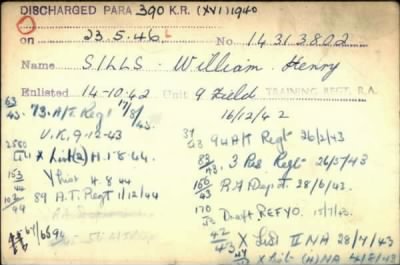 DISCHARGED PARA 390 K.R. (XVI) 1940
on 23.5.46 No 14313802
Name SILLS - William Henry
Enlisted 14-10-42 Unit 9 Field TRAINING REGT. R.A.
16/12/42
63/43 73. A/T Regt 17/8/43
U.K. 9-12-43
X List(2) A 1-8-44
89 A.T. Regt 1/12/44
37/43 94 A/T Regt 26/2/43
83/43 3 Res Regt 26/5/43
166/43 R.A Depot. 28/6/43.
170 Draft REFYO. 15/7/43.
42/43 X List II NA 28/7/43
X List (H) NA 4/8/43